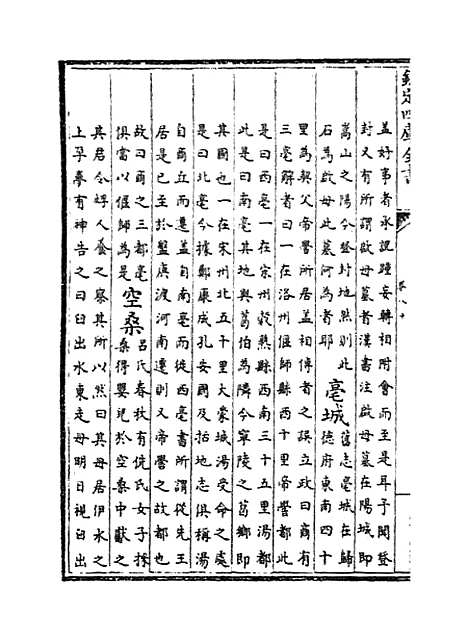 欽定四庫全書
蓋好事者承訛踵妄轉相附會而至是耳予閱登
封又有所謂啟母墓者漢書注啟母墓在陽城即
嵩山之陽今登封地然則此
石為啟母此墓河為者耶
亳城
舊志亳城在歸
德府東南四十
里為契父帝嚳所居蓋相傳者之誤立政曰商有
三亳解者曰一在洛州偃師縣西十里帝嚳都此
是曰西亳一在宋州穀熟縣西南三十五里湯都
此是曰南亳其地與葛伯為隣今寧陵之葛鄉即
其國也一在宋州北五十里大蒙城湯受命之處
是曰北亳今據鄭康成孔安國及括地志俱稱湯
自商丘而遷蓋自南亳而徙西亳書所謂從先王
居是已至於盤庚渡河南遷則又帝嚳之故都也
故曰商之三都亳
俱當以偃師為是
空桑
呂氏春秋有侁氏女子採
桑得嬰兒於空桑中獻之
其君令烰人養之察其所以然曰其母居伊水之
上孕夢有神告之曰臼出水東走母明日視臼出